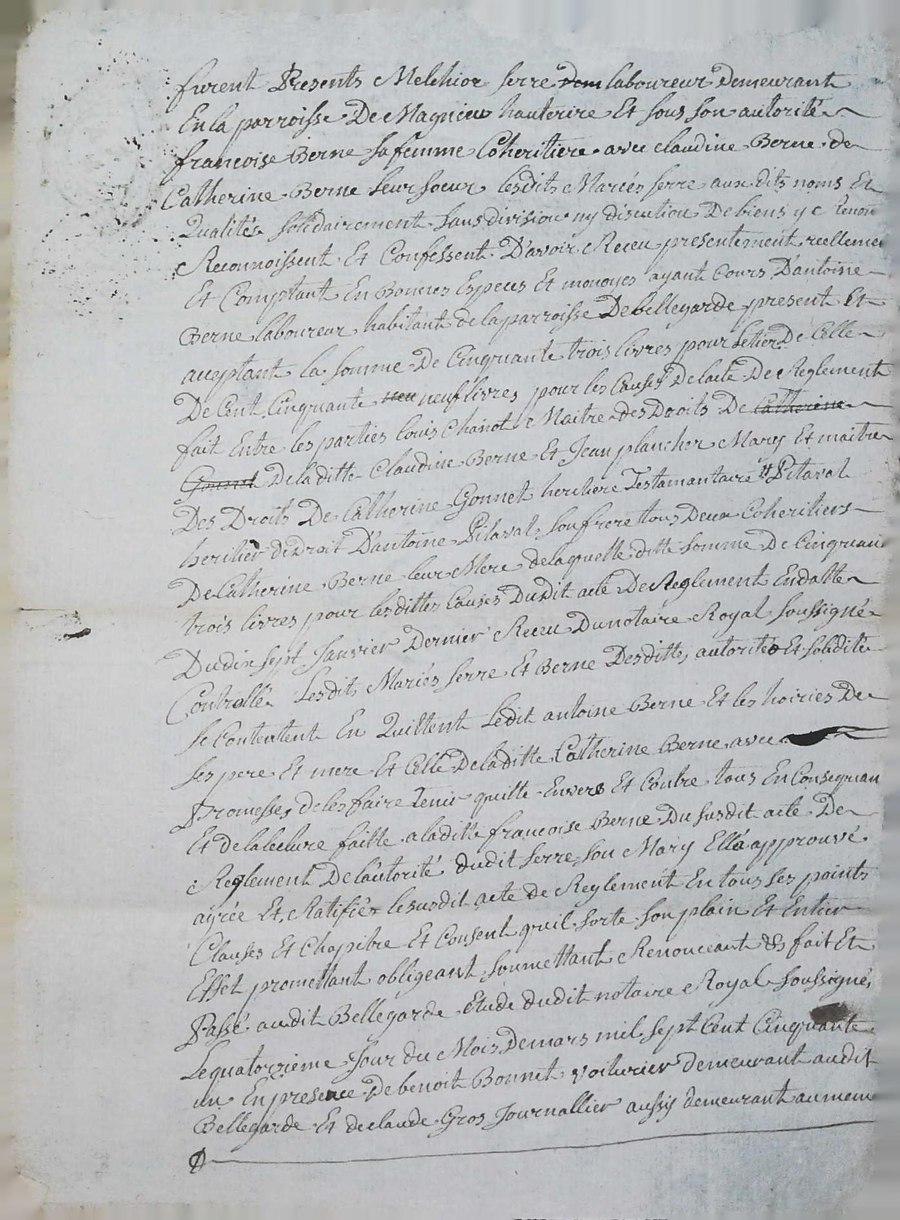 furent Presents Melchior Serre laboureur Demeurant
En la parroisse De Magnieu hauterire Et sous son autorité
francoise Berne sa femme Coheritiere avec claudine Berne de
Catherine Berne leur soeur lesdits Mariés Serre aux dits noms Et
Qualités solidairement sans division ny discution De biens y
Reconnoissent Et Confessent D'avoir Receu presentement reelleme
Et Comptant En Bonnes Especes Et monoyes ayant Cours D'antoine
Berne laboureur habitant de la parroisse De bellegarde present Et
aceptant la somme De Cinquante trois livres pour De Celle
De Cent Cinquante neuf livres pour les Causes De lacte De Reglement
fait Entre les parties louis Chanot Maitre des Droits De Catherine
Gonnet De laditte Claudine Berne Et Jean plancher Mary Et maitre
Des Droits De Catherine Gonnet heritiere Testamantaire Pitaval
heritier de Droit D'antoine Pitaval son frere tous Deux Coheritiers
De Catherine Berne leur Mere de laquelle ditte somme De Cinquan
trois livres pour lesdittes Causes Dudit acte De Reglement En datte
Du dix sept Janvier Dernier Receu Du notaire Royal soussigné
Controllé lesdits Mariés Serre Et Berne Desdittes autorité Et solidité
se Contentent En Quittent ledit antoine Berne Et les hoiries De
ses pere Et mere Et Celle De laditte Catherine Berne avec
Promesses de les faire Tenir quitte Envers Et Contre tous En Consequan
Et de la lecture faitte a laditte francoise Berne Du susdit acte De
Reglement De l'autorité dudit Serre son Mary Ella approuvé
agrée Et Ratifié le susdit acte de Reglement En tous ses points
Clauses Et Chapitre Et Consent quil sorte son plain Et Entier
Effet promettant obligeant soumettant Renonceant fait Et
Passé audit Bellegarde Etude dudit notaire Royal soussigné
Le quatorzieme Jour du Mois De mars mil sept Cent Cinquante
un En presence De benoit Bonnet voiturier demeurant audit
Bellegarde Et de claude Gros Journallier aussy demeurant au mem